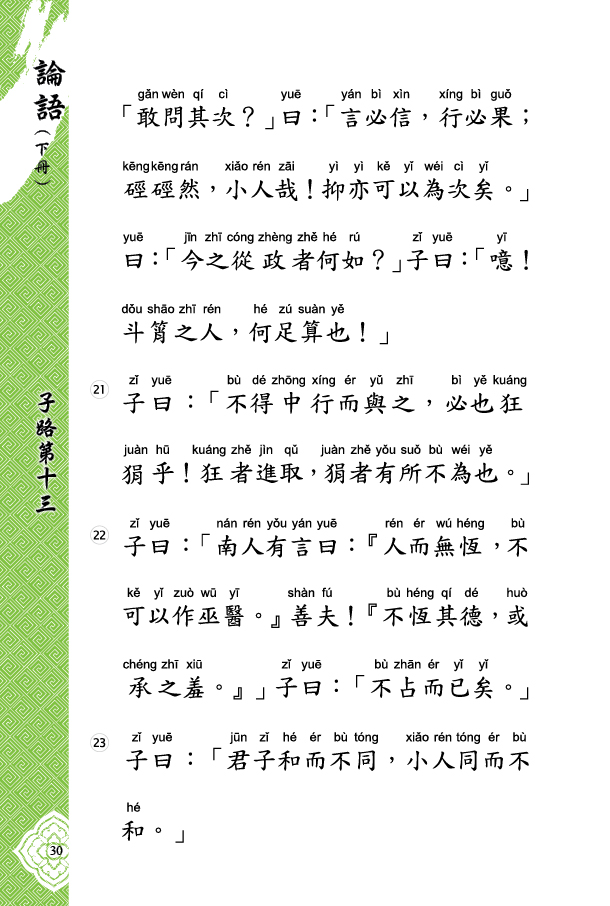 論語（下冊）
子路第十三
30
gǎn wèn qí cì yuē yán bì xìn xíng bì guǒ
「敢問其次？」曰：「言必信，行必果；
kēng kēng rán xiǎo rén zāi yì yì kě yǐ wéi cì yǐ
硜硜然，小人哉！抑亦可以為次矣。」
yuē jīn zhī cóng zhèng zhě hé rú zǐ yuē yī
曰：「今之從政者何如？」子曰：「噫！
dǒu shāo zhī rén hé zú suàn yě
斗筲之人，何足算也！」
zǐ yuē bù dé zhōng xíng ér yǔ zhī bì yě kuáng
21 子曰：「不得中行而與之，必也狂
juàn hū kuáng zhě jìn qǔ juàn zhě yǒu suǒ bù wéi yě
狷乎！狂者進取，狷者有所不為也。」
zǐ yuē nán rén yǒu yán yuē rén ér wú héng bù
22 子曰：「南人有言曰：『人而無恆，不
kě yǐ zuò wū yī shàn fú bù héng qí dé huò
可以作巫醫。』善夫！『不恆其德，或
chéng zhī xiū zǐ yuē bù zhān ér yǐ yǐ
承之羞。』」子曰：「不占而已矣。」
zǐ yuē jūn zǐ hé ér bù tóng xiǎo rén tóng ér bù
23 子曰：「君子和而不同，小人同而不
hé
和。」